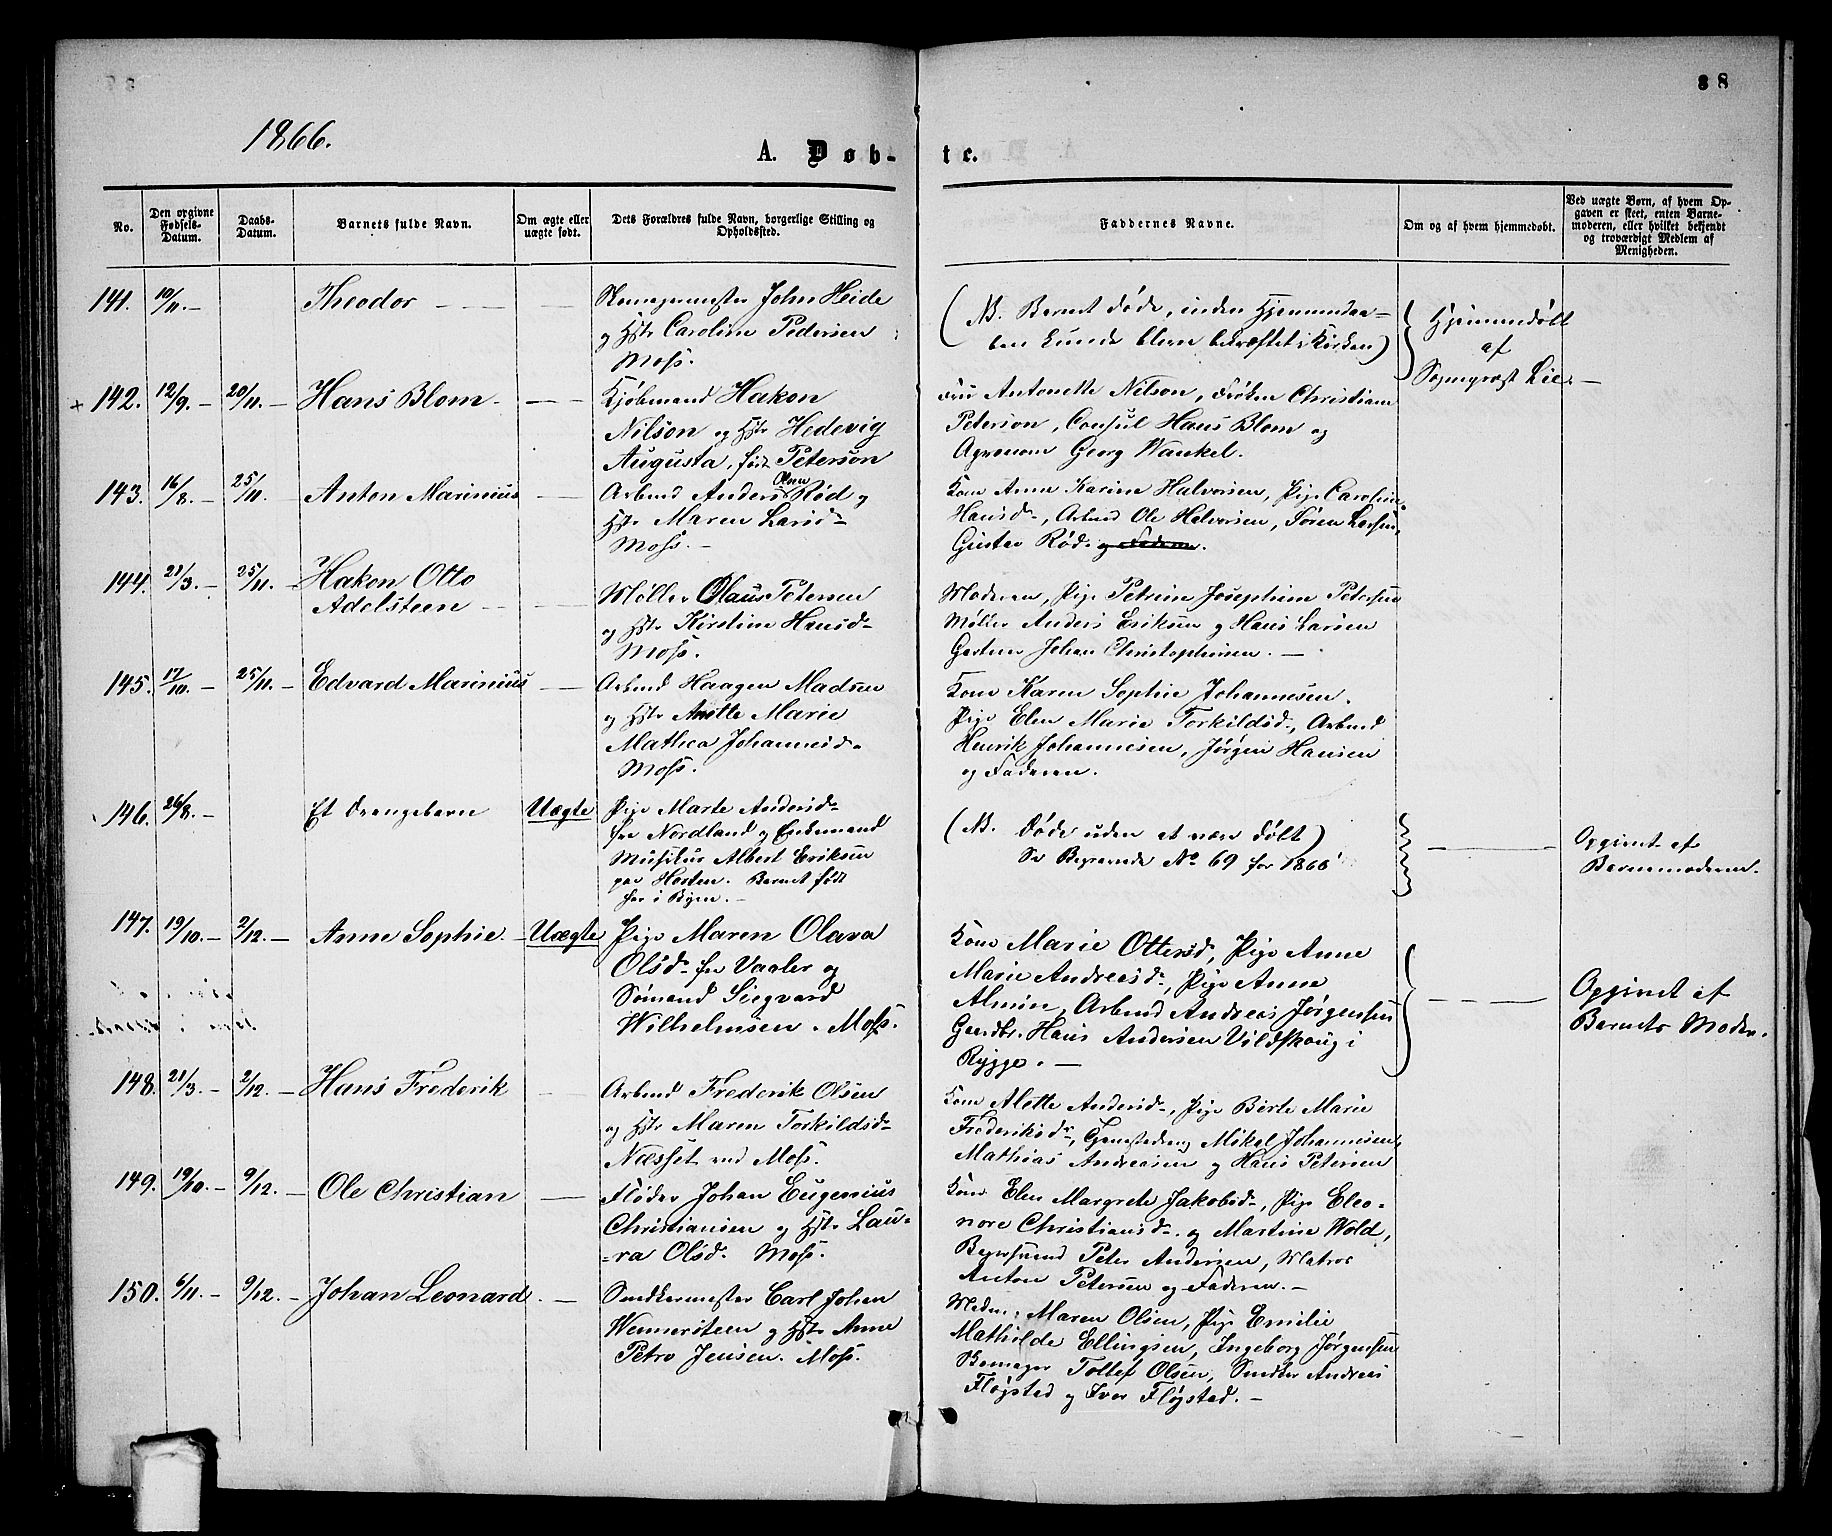 38
1866.
A. Døb-
te.
No.
Den opgivne Fødsels-Datum.
Daabs-Datum.
Barnets fulde Navn.
Om ægte eller uægte født.
Dets Forældres fulde Navn, borgerlige Stilling og Opholdssted.
Faddernes Navne.
Om og af hvem hjemmedøbt.
Ved uægte Børn, af hvem Opgaven er skeet, enten Barnemoderen, eller hvilket bekjendt og troværdigt Medlem af Menigheden.
141. 10/11. — Theodor — —
Skomagermester John Heide
og Hstr Caroline Pedersen
Moss.
(NB. Barnet døde, inden Hjemmedaa-
ben kunde bleve bekræftet i Kirken)
Hjemmedøbt
af
Sogneprest Lie. —
+ 142. 12/9. — 20/11. — Hans Blom. — —
Kjøbmand Hakon
Nilson og Hstr Hedevig
Augusta, født Peterson
Fru Antonette Nilson, Frøken Christiane
Peterson, Consul Hans Blom og
Agronom Georg Wankel.
143. 16/8. — 25/11. — Anton Marinius —
Arbmd Anders Olsen Rød og
Hstr Maren Larsd.
Moss. —
Kone Anne Karine Halvorsen, Pige Caroline
Hansd., Arbmd Ole Halvorsen, Søren Larsen,
Gustav Rød. og Faderen.
144. 21/3. — 25/11. — Hakon Otto
Adelsteen — —
Møller Olaus Petersen
og Hstr Kirstine Hansd.
Moss.
Moderen, Pige Petrine Josephine Petersen
Møller Anders Eriksen og Hans Larsen
Gartner Johan Christophersen. —
145. 17/10. — 25/11. — Edvard Marinius —
Arbmd Haagen Madsen
og Hstr Anette Marie
Mathea Johannesd.
Moss.
Kone Karen Sophie Johannesen.
Pige Elen Marie Torkildsd., Arbmd
Henrik Johannesen, Jørgen Hansen
og Faderen.
146. 26/8. — Et Drengebarn Uægte
Pige Marte Andersd.
fra Nordland og Enkemand
Musikus Albert Eriksen
paa Horten. Barnet født
her i Byen. —
(NB. Døde uden at være døbt)
Se Begravede No 69 for 1866
Opgivet af
Barnemoderen.
147. 19/10. — 2/12. — Anne Sophie. — Uægte
Pige Maren Olava
Olsd. fra Vaaler og
Sømand Siegvard
Wilhelmsen. Moss.
Kone Marie Ottersd, Pige Anne
Marie Andreasd., Pige Anna
Almin, Arbmd Andreas Jørgensen
Gaardbr. Hans Andersen Vildskoug i
Rygge. —
Opgivet af
Barnets Moder.
148. 21/3. — 2/12. — Hans Frederik —
Arbmd Frederik Olsen
og Hstr Maren Torkildsd.
Næsset ved Moss.
Kone Alette Andersd., Pige Birte Marie
Frederiksd., Mikal Johannesen,
Mathias Andreasen og Hans Petersen
149. 19/10. — 9/12. — Ole Christian —
Fløder Johan Eugenius
Christiansen og Hstr Lau-
ra Olsd. Moss.
Kone Elen Margrete Jakobsd., Pige Eleo-
nore Christiansd. og Martine Wold,
Peter Andersen, Matros
Anton Petersen og Faderen. —
150. 6/11. — 9/12. — Johan Leonard. —
Snedkermester Carl Johan
Wennersteen og Hstr Anne
Petra Jensen. Moss.
Maren Olsen, Pige Emilie
Mathilde Ellingsen, Ingeborg Jørgensen
Tollef Olsen, Snedker Andreas
Fløjstad og Iver Fløjstad. —